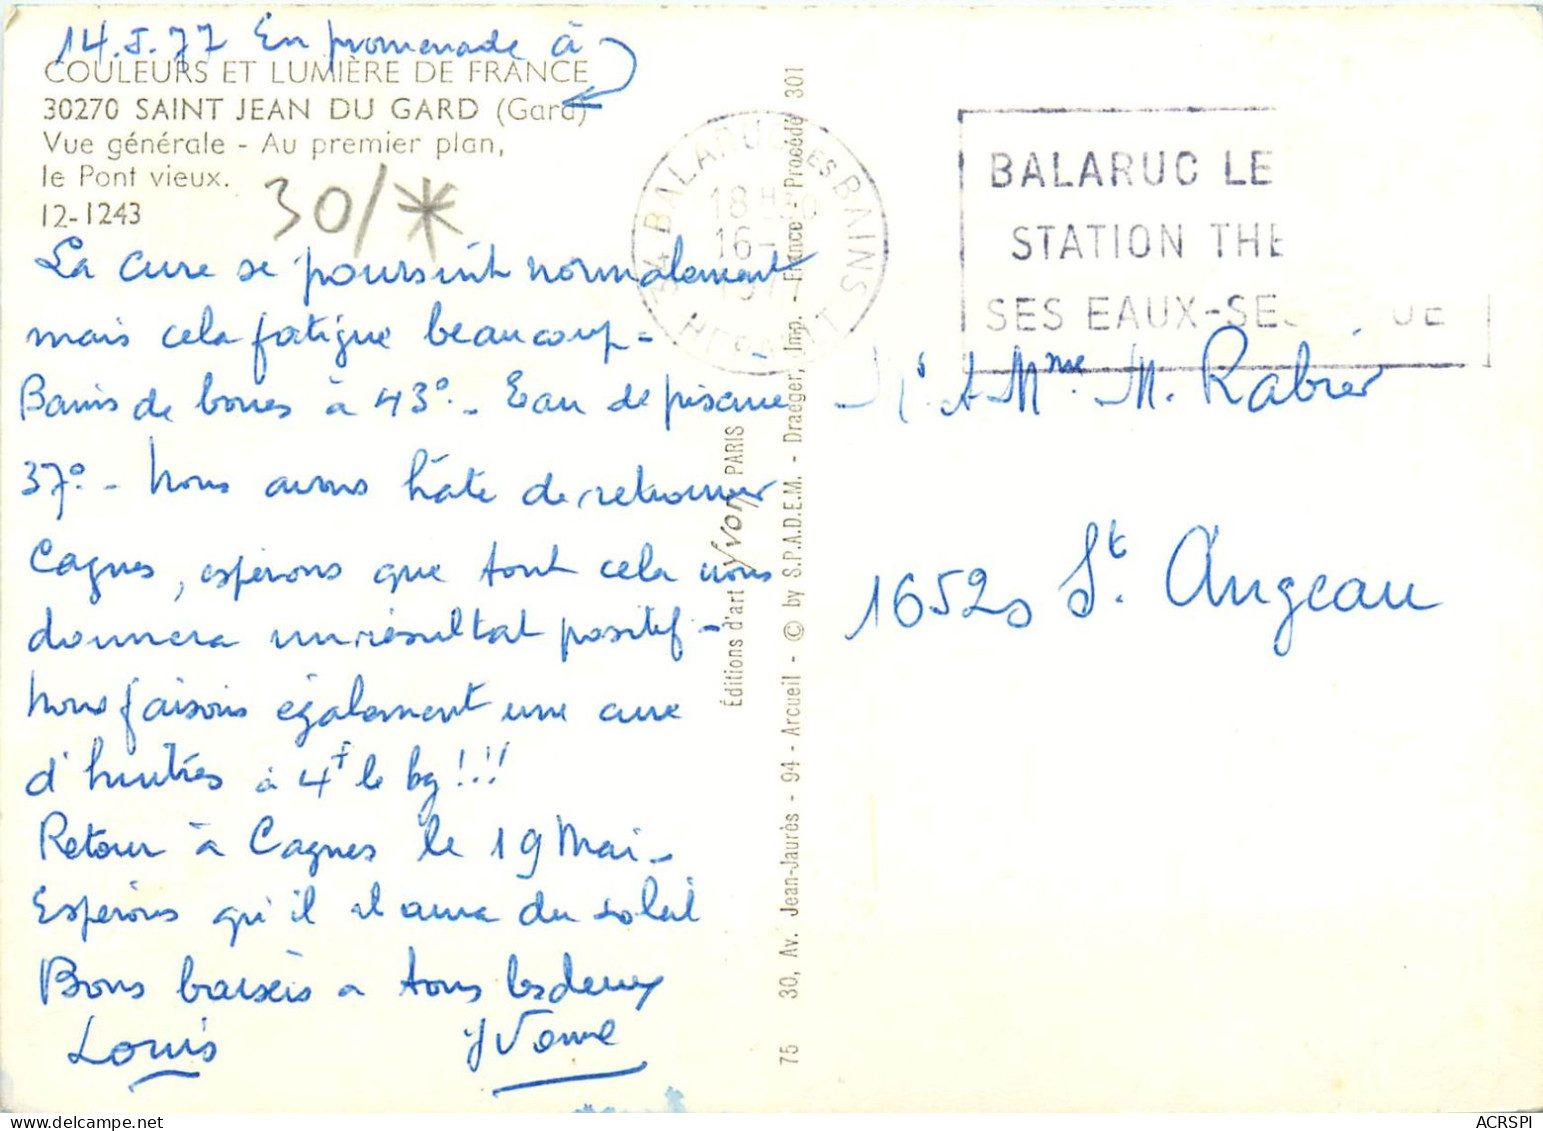 14.5.77 En promenade à
COULEURS ET LUMIÈRE DE FRANCE
30270 SAINT JEAN DU GARD (Gard)
Vue générale - Au premier plan,
le Pont vieux.
12-1243
30/*
La cure se poursuit normalement
mais cela fatigue beaucoup -
Bains de boues à 43° - Eau de piscine
37° - Nous avons hâte de retrouver
Cagnes, espérons que tout cela nous
donnera un résultat positif -
Nous faisons également une cure
d'huitres à 4F le kg!!!
Retour à Cagnes le 19 Mai -
Espérons qu'il y aura du soleil
Bons baisers à tous les deux
Louis Yvonne
Éditions d'art Yvon PARIS
75 30, Av. Jean-Jaurès - 94 - Arcueil - © by S.P.A.D.E.M. - Draeger, Imp. - France - Procédé 301
34 BALARUC LES BAINS
18H30
16-
1977
HERAULT
BALARUC LE
STATION THE
SES EAUX-SE
Mr & Mme M. Rabier
16520 St. Angeau
ACRSPI